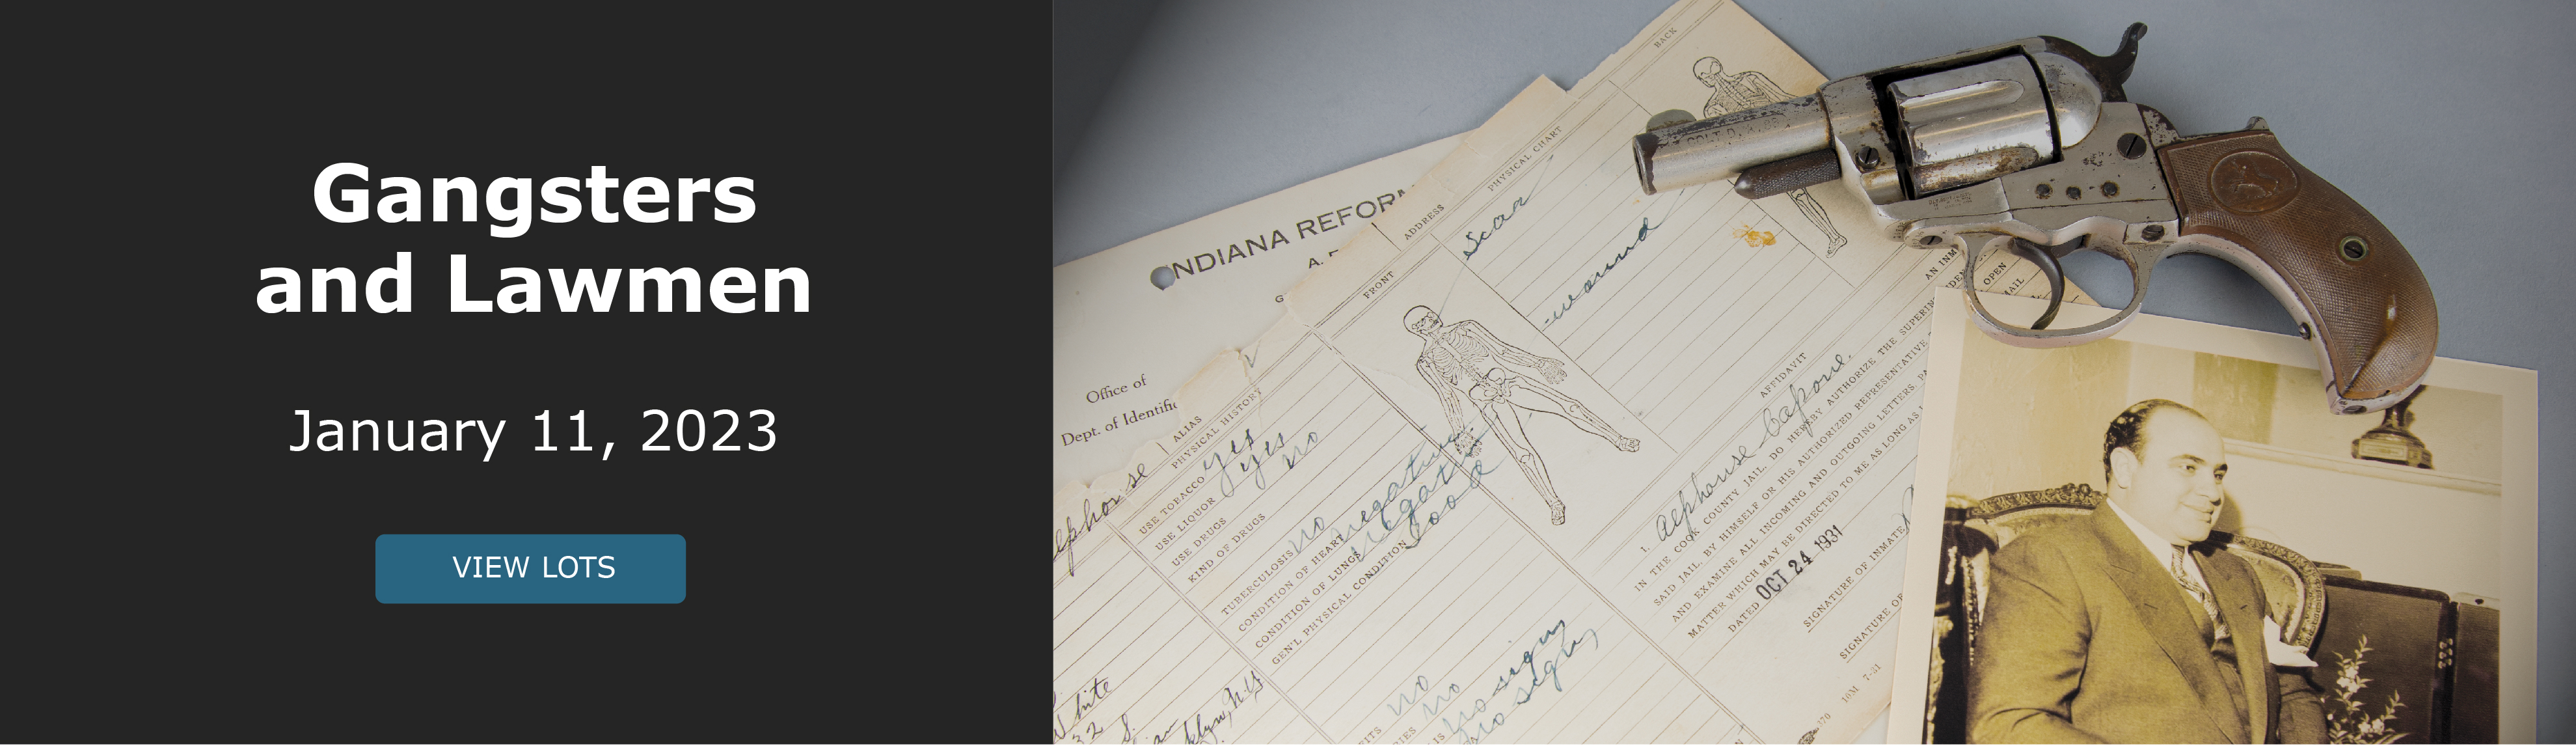 Gangsters
and Lawmen
January 11, 2023
VIEW LOTS
NDIANA REFOR
Office of
Dept. of Identific
ALIAS
PHYSICAL HISTORY
USE TOBACCO yes
USE LIQUOR yes
USE DRUGS no
KIND OF DRUGS
TUBERCULOSIS no
CONDITION OF HEART negative
CONDITION OF LUNGS negative
GEN'L PHYSICAL CONDITION good
no
no
no signs
no signs
ADDRESS
PHYSICAL CHART
BACK
FRONT
Scar
wound
AFFIDAVIT
I, Alphonse Capone,
IN THE COOK COUNTY JAIL, DO HEREBY AUTHORIZE THE SUPERIN
SAID JAIL, BY HIMSELF OR HIS AUTHORIZED REPRESENTATIVE
AND EXAMINE ALL INCOMING AND OUTGOING LETTERS, PA
MATTER WHICH MAY BE DIRECTED TO ME AS LONG AS I
DATED OCT 24 1931
SIGNATURE OF INMATE
SIGNATURE OF
10M 7-31
AN INM
OPEN
COLT D.A.